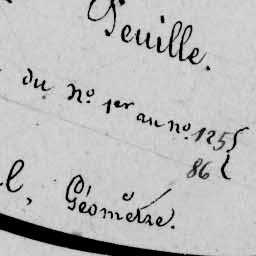 Feuille.
du N.º 1er au N.º 125
86
l, Géomètre.